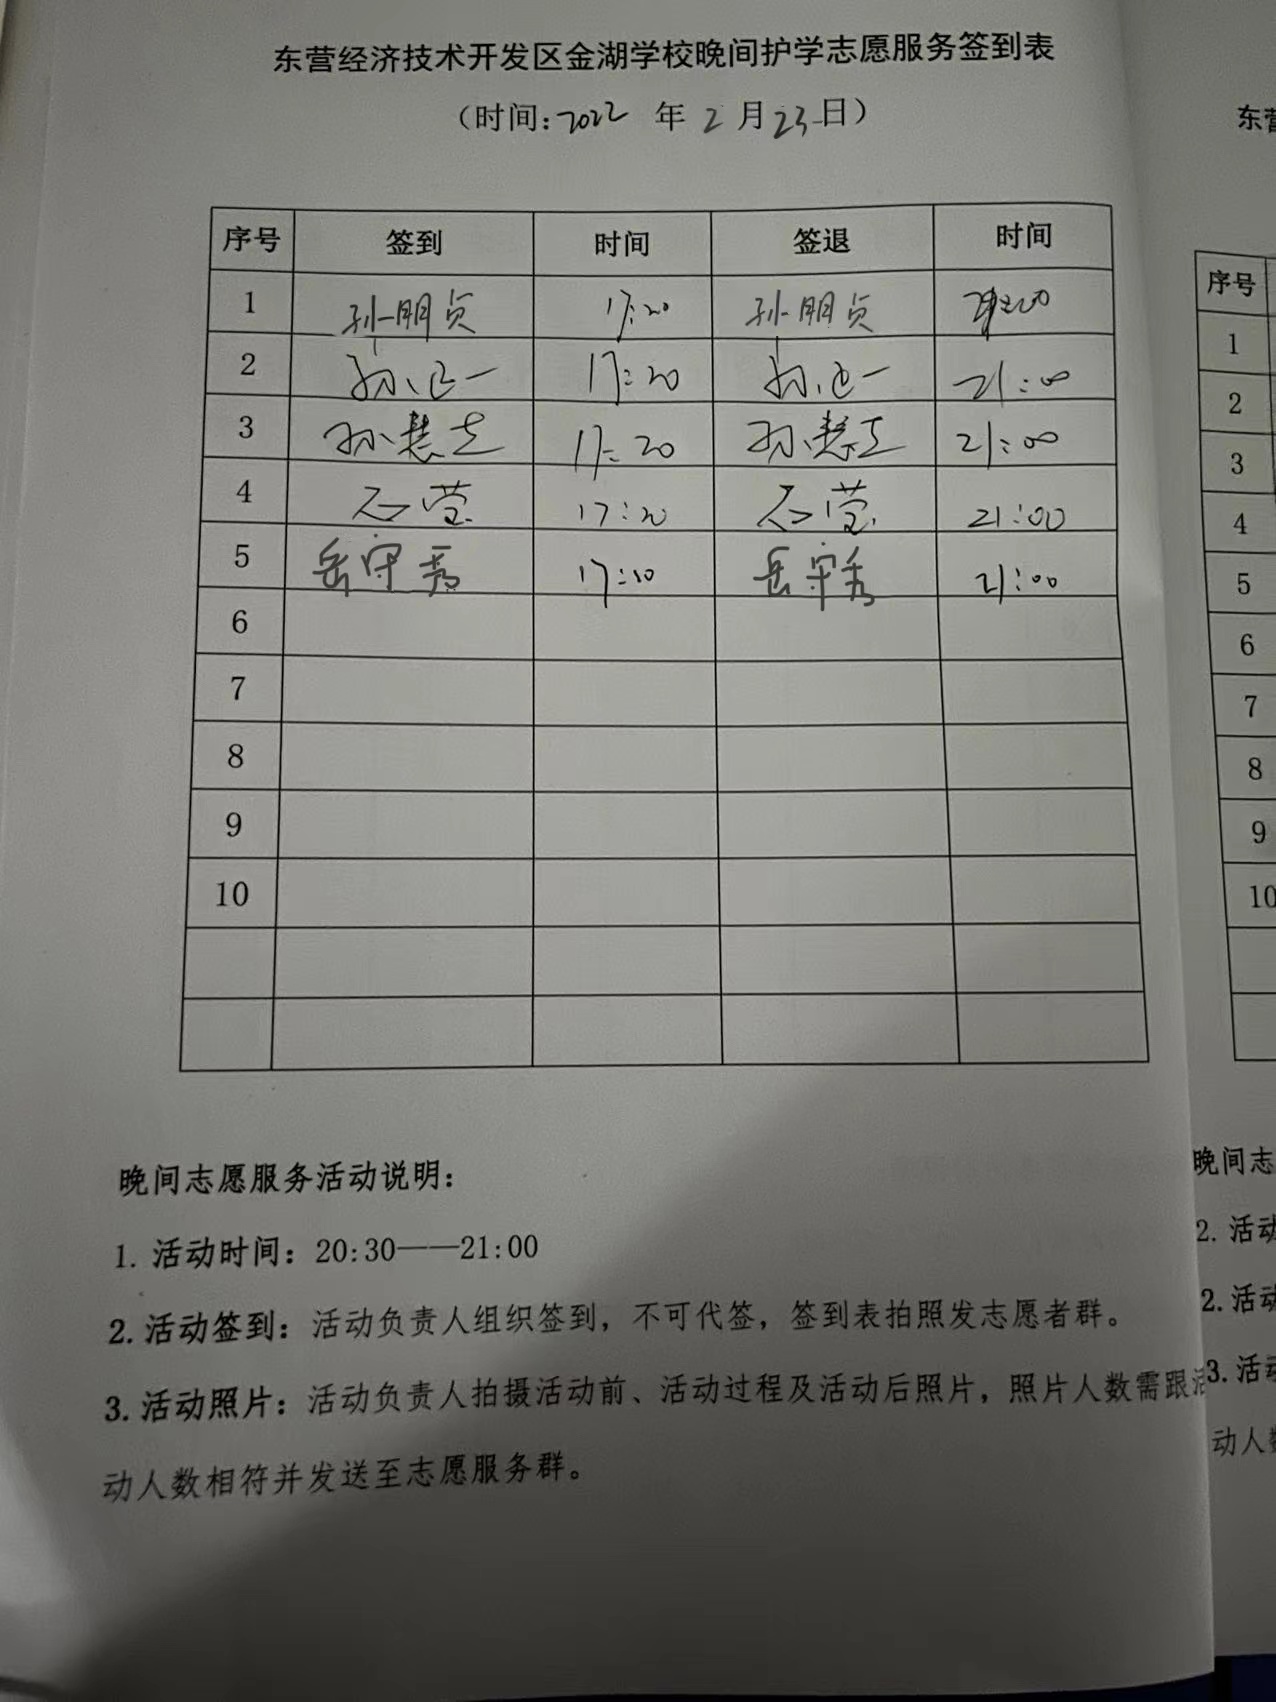 东营经济技术开发区金湖学校晚间护学志愿服务签到表
（时间：2022 年 2 月 23 日）
序号 签到 时间 签退 时间
1 孙朋贞 17:20 孙朋贞
2 孙 一 17:20 孙 一 21:00
3 孙慧 17:20 孙慧 21:00
4 石莹 17:20 石莹 21:00
5 岳守秀 17:20 岳守秀 21:00
6
7
8
9
10
晚间志愿服务活动说明：
1. 活动时间：20:30——21:00
2. 活动签到：活动负责人组织签到，不可代签，签到表拍照发志愿者群。
3. 活动照片：活动负责人拍摄活动前、活动过程及活动后照片，照片人数需跟活
动人数相符并发送至志愿服务群。
东营
序号
1
2
3
4
5
6
7
8
9
10
晚间志
2. 活动
2. 活动
3. 活动
动人数